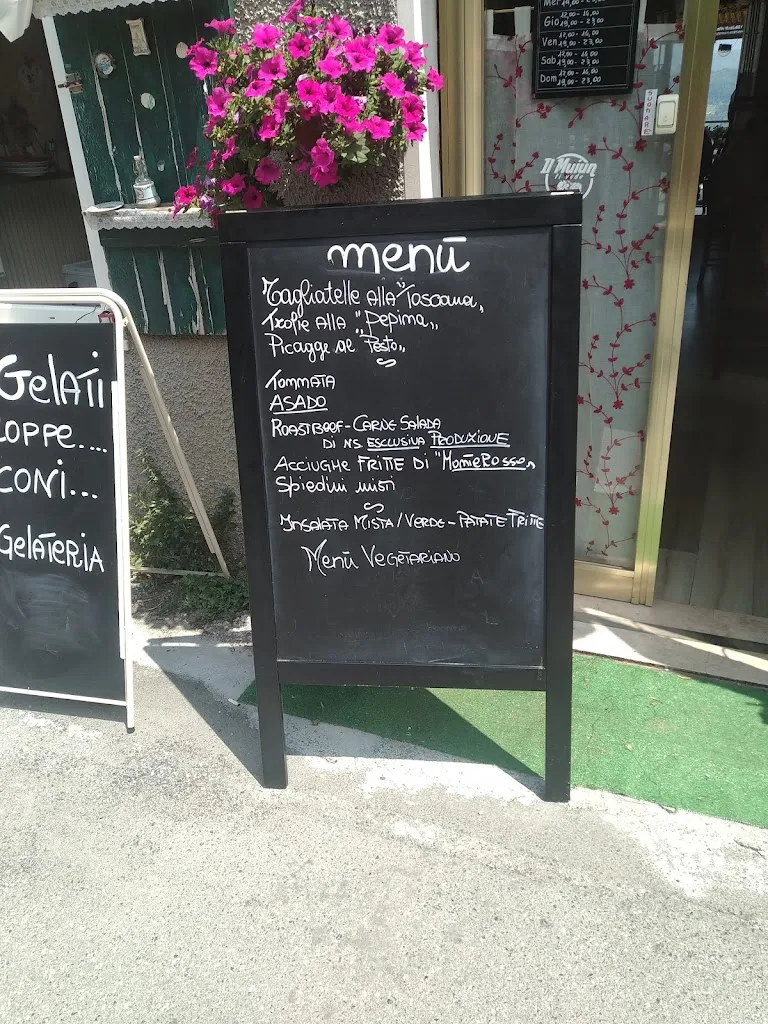 Mer 19,00 - 23,00
Gio 12,00 - 16,00
19,00 - 23,00
Ven 12,00 - 16,00
19,00 - 23,00
Sab 12,00 - 16,00
19,00 - 23,00
Dom 12,00 - 16,00
19,00 - 23,00
SUONARE
Il Muiun
ti vede
menū
Tagliatelle ALLA "Toscana"
Trofie ALLA "Pepima"
Picagge al Pesto"
TOMMATA
ASADO
ROASTBEEF - CARNE SALADA
DI NS ESCLUSIVA PRODUZIONE
ACCIUGHE FRITTE DI "MONTEROSSO"
Spiedini misti
INSALATA MISTA / VERDE - PATATE FRITTE
MENÙ VEGETARIANO
GELATI
COPPE....
CONI...
GELATERIA